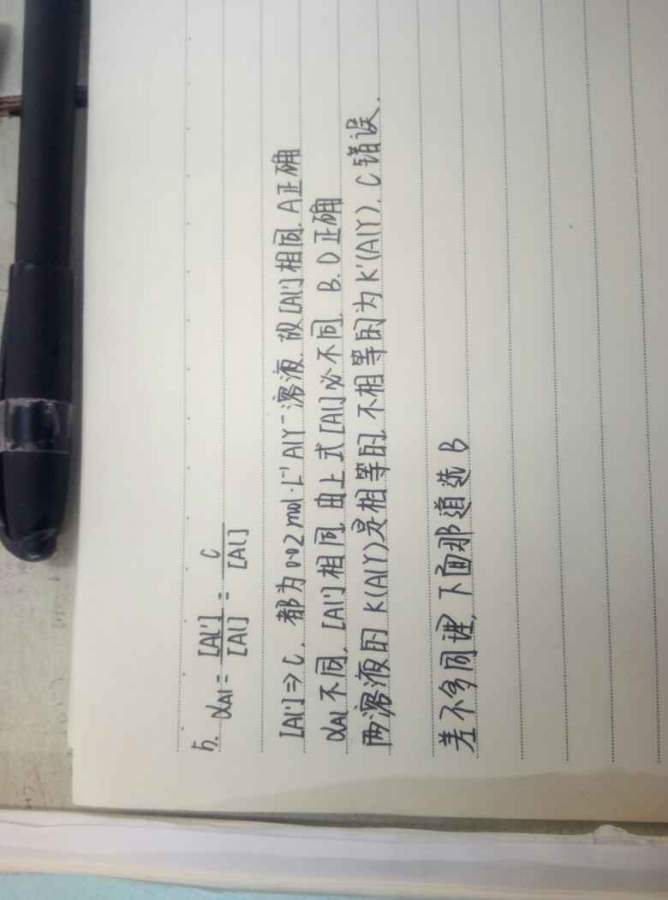 5. αAl = [Al']/[Al] = C/[Al]
[Al'] ⇒ C, 都为0.02mol·L⁻¹ AlY⁻溶液, 故[Al']相同, A正确
αAl不同, [Al']相同, 由上式[Al]必不同, B.D正确
两溶液的K(AlY)是相等的, 不相等的为K'(AlY), C错误.
差不多同理, 下面那道选B